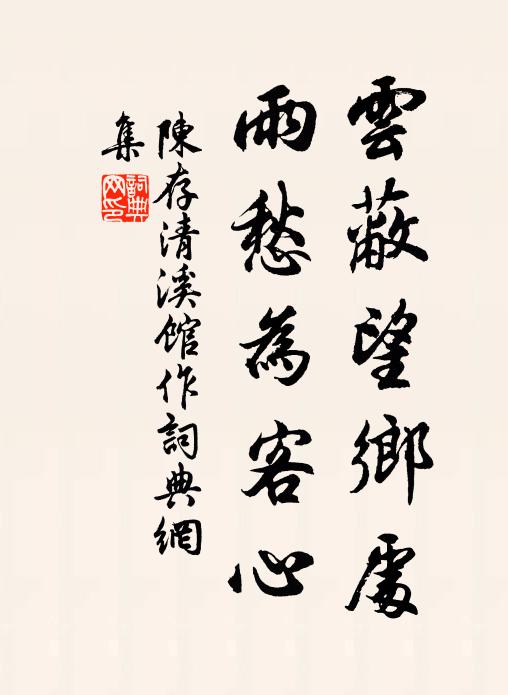 雲蔽望鄉處
雨愁為客心
陳存清溪館作詞典網
集
詞典網印